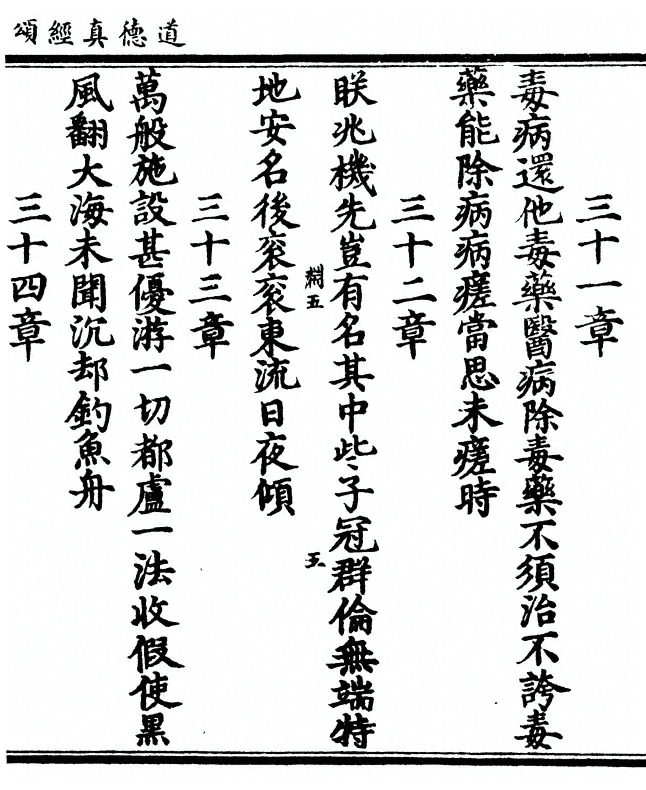 道德真經頌
三十一章
毒病還他毒藥醫病除毒藥不須治不誇毒
藥能除病病瘥當思未瘥時
三十二章
眹兆機先豈有名其中些〻子冠群倫無端特
淵五
五
地安名後衮衮東流日夜傾
三十三章
萬般施設甚優游一切都盧一法收假使黑
風翻大海未聞沉却釣魚舟
三十四章